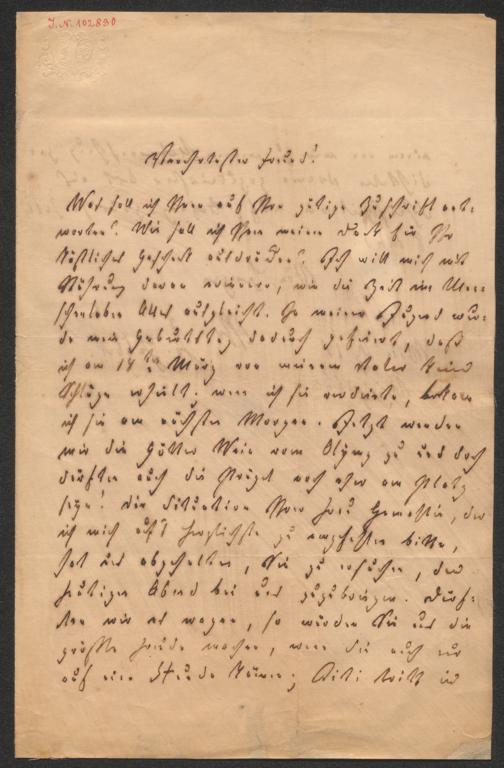 I.N. 102830
Verehrtester Freund!
Was soll ich Ihnen auf Ihre gütige Zuschrift ant-
worten? Wie soll ich Ihnen meinen Dank für Ihr
köstliches Geschenk ausdrücken? Ich will mich mit
Rührung daran erinnern, wie die Zeit im Men-
schenleben Alles ausgleicht. In meiner Jugend wur-
de mein Geburtstag dadurch gefeiert, daß
ich am 14ten März von meinem Vater keine
Schläge erhielt; wenn ich sie verdiente, bekam
ich sie am nächsten Morgen. Jetzt senden
mir die Götter Wein vom Olymp zu und doch
dürften auch die Prügel noch eher am Platz
seyn! Die Situation Ihrer Frau Gemahlin, der
ich mich auf's herzlichste zu empfehlen bitte,
hat uns abgehalten, Sie zu ersuchen, den
heutigen Abend bei uns zuzubringen. Dürf-
ten wir es wagen, so würden Sie uns die
größte Freude machen, wenn Sie auch nur
auf eine Stunde kämen; Titi tritt in